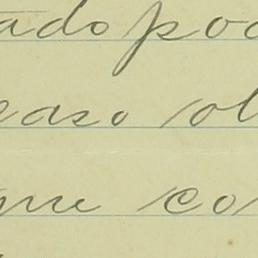 ado poc
caso ol
que co